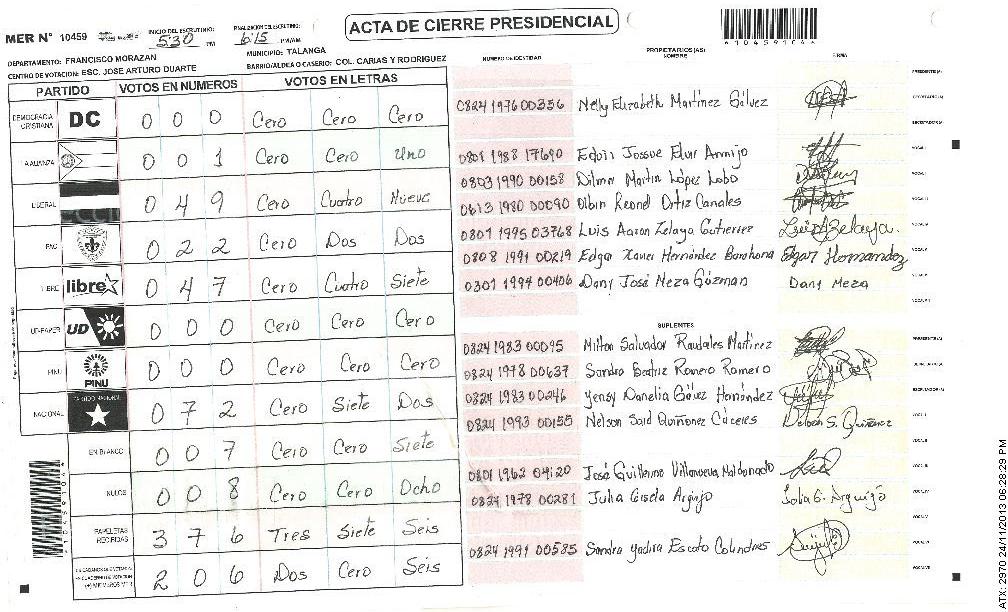 ACTA DE CIERRE PRESIDENCIAL
MER N° 10459
INICIO DEL ESCRUTINIO: 5:30 PM
FINALIZACION DEL ESCRUTINIO: 6:15 PM/AM
*10459104*
DEPARTAMENTO: FRANCISCO MORAZAN
MUNICIPIO: TALANGA
CENTRO DE VOTACION: ESC. JOSE ARTURO DUARTE
BARRIO/ALDEA O CASERIO: COL. CARIAS Y RODRIGUEZ
PARTIDO VOTOS EN NUMEROS VOTOS EN LETRAS
DEMOCRACIA CRISTIANA DC 0 0 0 Cero Cero Cero
LA ALIANZA 0 0 1 Cero Cero Uno
LIBERAL 0 4 9 Cero Cuatro Nueve
PAC 0 2 2 Cero Dos Dos
LIBRE libre 0 4 7 Cero Cuatro Siete
UD-FAPER UD 0 0 0 Cero Cero Cero
PINU PINU 0 0 0 Cero Cero Cero
NACIONAL PARTIDO NACIONAL 0 7 2 Cero Siete Dos
EN BLANCO 0 0 7 Cero Cero Siete
NULOS 0 0 8 Cero Cero Ocho
PAPELETAS RECIBIDAS 3 7 6 Tres Siete Seis
2 0 6 Dos Cero Seis
*10459104*
NUMERO DE IDENTIDAD PROPIETARIOS(AS) NOMBRE FIRMA
PRESIDENTE(A)
0824 1976 00356 Nelly Elizabeth Martínez Gálvez SECRETARIO(A)
ESCRUTADOR(A)
0801 1988 17690 Edvin Jossue Elvir Armijo VOCAL I
0803 1990 00158 Dilmer Martin López Lobo VOCAL II
0613 1980 00090 Olbin Reonel Ortiz Canales VOCAL III
0801 1995 03768 Luis Aaron Zelaya Gutierrez Luis A Zelaya. VOCAL IV
0808 1991 00219 Edgar Xavier Hernández Barahona Edgar Hernandez VOCAL V
0301 1994 00406 Dany José Meza Gúzman Dany Meza VOCAL VI
VOCAL VII
SUPLENTES
0824 1983 00095 Milton Salvador Raudales Martínez PRESIDENTE(A)
0824 1978 00637 Sandra Beatriz Romero Romero SECRETARIO(A)
0824 1983 00246 Yensy Danelia Gálvez Hernández ESCRUTADOR(A)
0824 1993 00155 Nelson Said Quiñonez Cáceres Nelson S. Quiñonez VOCAL I
VOCAL II
0801 1962 04120 José Guillermo Villanueva Maldonado VOCAL III
0824 1978 00281 Julia Gisela Argijo VOCAL IV
VOCAL V
0824 1991 00585 Sandra Yadira Escoto Colindres VOCAL VI
VOCAL VII
ATX: 2970 24/11/2013 06:28:29 PM